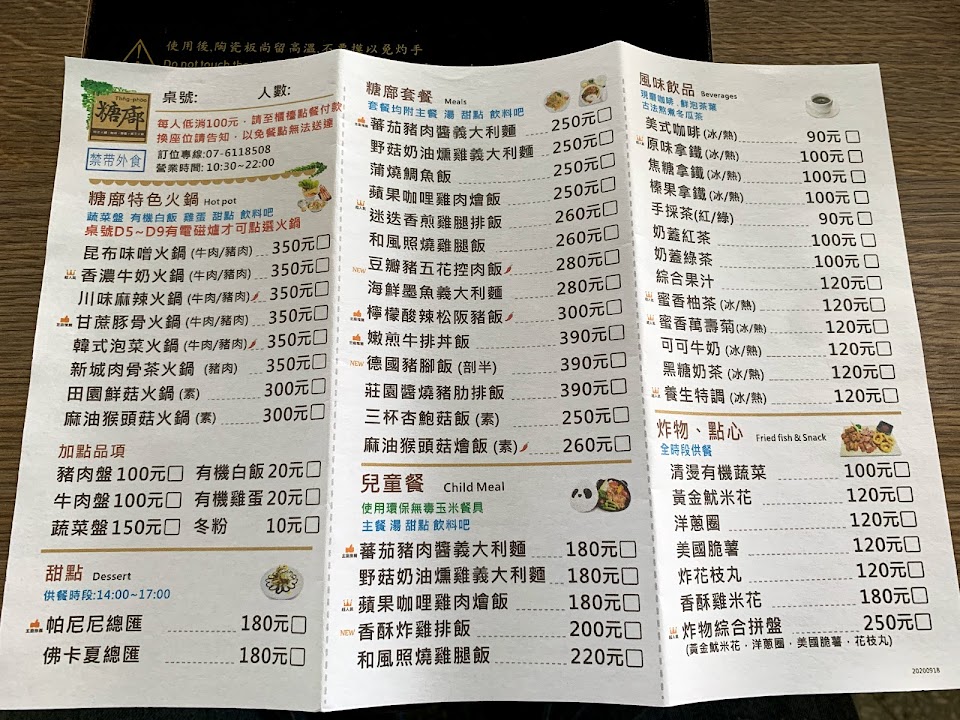 使用後,陶瓷板尚留高溫,不要摸以免灼手
Do not touch the
Thñg-phòo
糖廊
禁帶外食
桌號:
人數:
每人低消100元, 請至櫃檯點餐付款
換座位請告知, 以免餐點無法送達
訂位專線:07-6118508
營業時間: 10:30~22:00
糖廊特色火鍋 Hot pot
蔬菜盤 有機白飯 雞蛋 甜點 飲料吧
桌號D5~D9有電磁爐才可點選火鍋
昆布味噌火鍋 (牛肉/豬肉) 350元
香濃牛奶火鍋 (牛肉/豬肉) 350元
川味麻辣火鍋 (牛肉/豬肉) 350元
甘蔗豚骨火鍋 (牛肉/豬肉) 350元
韓式泡菜火鍋 (牛肉/豬肉) 350元
新城肉骨茶火鍋 (豬肉) 350元
田園鮮菇火鍋 (素) 300元
麻油猴頭菇火鍋 (素) 300元
加點品項
豬肉盤 100元 有機白飯 20元
牛肉盤 100元 有機雞蛋 20元
蔬菜盤 150元 冬粉 10元
甜點 Dessert
供餐時段:14:00~17:00
帕尼尼總匯 180元
佛卡夏總匯 180元
糖廊套餐 Meals
套餐均附主餐 湯 甜點 飲料吧
蕃茄豬肉醬義大利麵 250元
野菇奶油燻雞義大利麵 250元
蒲燒鯛魚飯 250元
蘋果咖哩雞肉燴飯 250元
迷迭香煎雞腿排飯 260元
和風照燒雞腿飯 260元
NEW 豆瓣豬五花控肉飯 280元
海鮮墨魚義大利麵 280元
檸檬酸辣松阪豬飯 300元
嫩煎牛排丼飯 390元
NEW 德國豬腳飯 (剖半) 390元
莊園醬燒豬肋排飯 390元
三杯杏鮑菇飯 (素) 250元
麻油猴頭菇燴飯 (素) 260元
兒童餐 Child Meal
使用環保無毒玉米餐具
主餐 湯 甜點 飲料吧
蕃茄豬肉醬義大利麵 180元
野菇奶油燻雞義大利麵 180元
蘋果咖哩雞肉燴飯 180元
NEW 香酥炸雞排飯 200元
和風照燒雞腿飯 220元
風味飲品 Beverages
現磨咖啡 . 鮮泡茶葉
古法熬煮冬瓜茶
美式咖啡 (冰/熱) 90元
原味拿鐵 (冰/熱) 100元
焦糖拿鐵 (冰/熱) 100元
榛果拿鐵 (冰/熱) 100元
手採茶(紅/綠) 90元
奶蓋紅茶 100元
奶蓋綠茶 100元
綜合果汁 120元
蜜香柚茶 (冰/熱) 120元
蜜香萬壽菊(冰/熱) 120元
可可牛奶 (冰/熱) 120元
黑糖奶茶 (冰/熱) 120元
養生特調 (冰/熱) 120元
炸物、點心 Fried fish & Snack
全時段供餐
清燙有機蔬菜 100元
黃金魷米花 120元
洋蔥圈 120元
美國脆薯 120元
炸花枝丸 120元
香酥雞米花 180元
炸物綜合拼盤 250元
(黃金魷米花 . 洋蔥圈 . 美國脆薯 . 花枝丸)
20200918